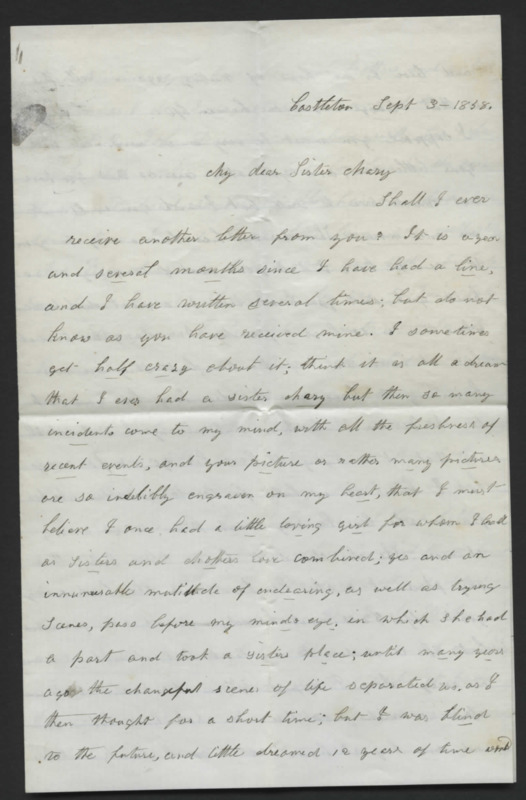 Castleton Sept 3 - 1858.
My dear Sister Mary
Shall I ever
receive another letter from you? It is a year
and several months since I have had a line,
and I have written several times; but do not
know as you have received mine. I sometimes
get half crazy about it; think it is all a dream
that I ever had a sister Mary but then so many
incidents come to my mind, with all the freshness of
recent events, and your picture or rather many pictures
are so indelibly engraven on my heart, that I must
believe I once had a little loving girl for whom I had
a Sisters and Mothers love combined; yes and an
innumerable multitude of endearing, as well as trying
Scenes, pass before my minds eye, in which she had
a part and took a sisters place; until many years
ago the changeful scenes of life separated us, as I
then thought for a short time; but I was blind
to the future, and little dreamed 12 years of time would